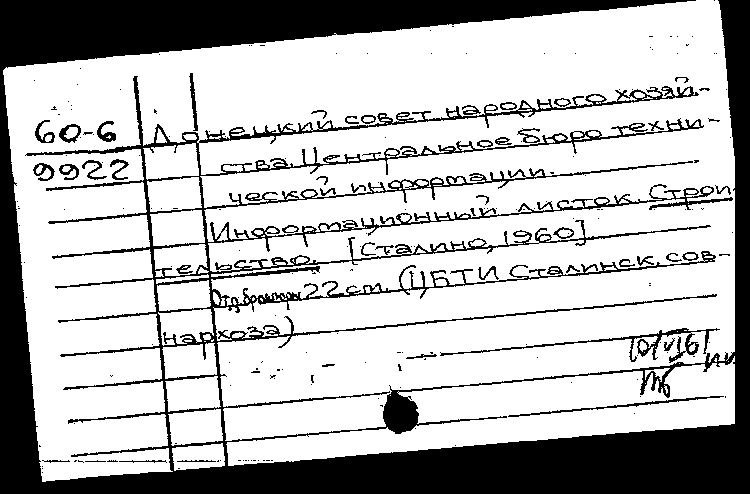 60-6 Донецкий совет народного хозяй-
9922 ства. Центральное бюро техни-
ческой информации.
Информационный листок. Строи-
тельство. [Сталино, 1960]
22 cm. (ЦБТИ Сталинск. сов-
нархоза)
10/VI61